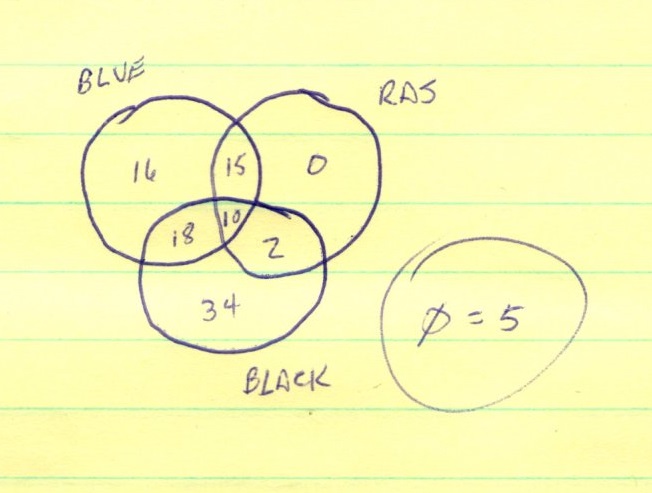 BLUE
RAS
16
15
0
18
10
2
34
∅ = 5
BLACK